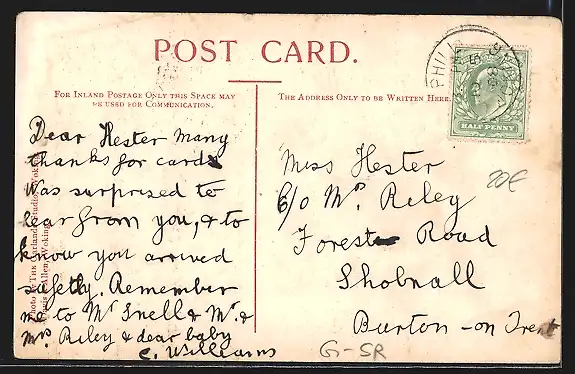 POST CARD.
FOR INLAND POSTAGE ONLY THIS SPACE MAY
BE USED FOR COMMUNICATION.
THE ADDRESS ONLY TO BE WRITTEN HERE.
HALF PENNY
Dear Hester many
thanks for cards
Was surprised to
hear from you, & to
know you arrived
safetly. Remember
me to Mr Snell & Mr. &
Mrs Riley & dear baby
C. Williams
Miss Hester
C/o Mrs Riley
Forest Road
Shobnall
Burton-on Trent
20€
G-SR